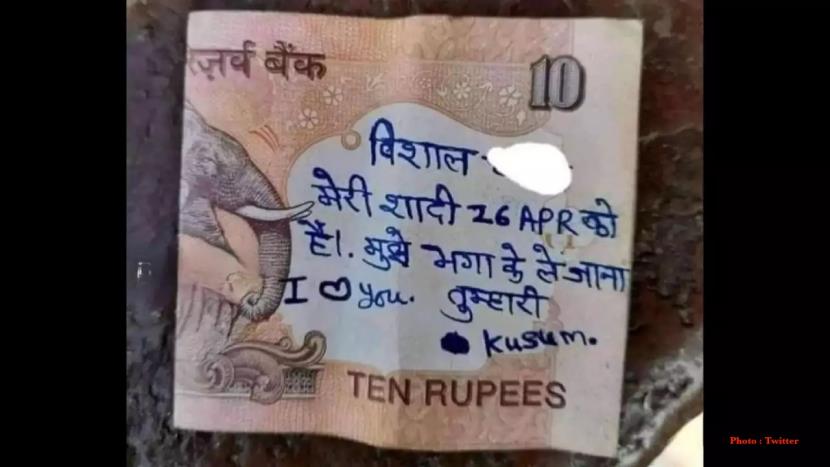 रिज़र्व बैंक
10
विशाल
मेरी शादी 26 APR को
है।. मुझे भगा के ले जाना
I ♡ you. तुम्हारी
Kusum.
TEN RUPEES
Photo : Twitter